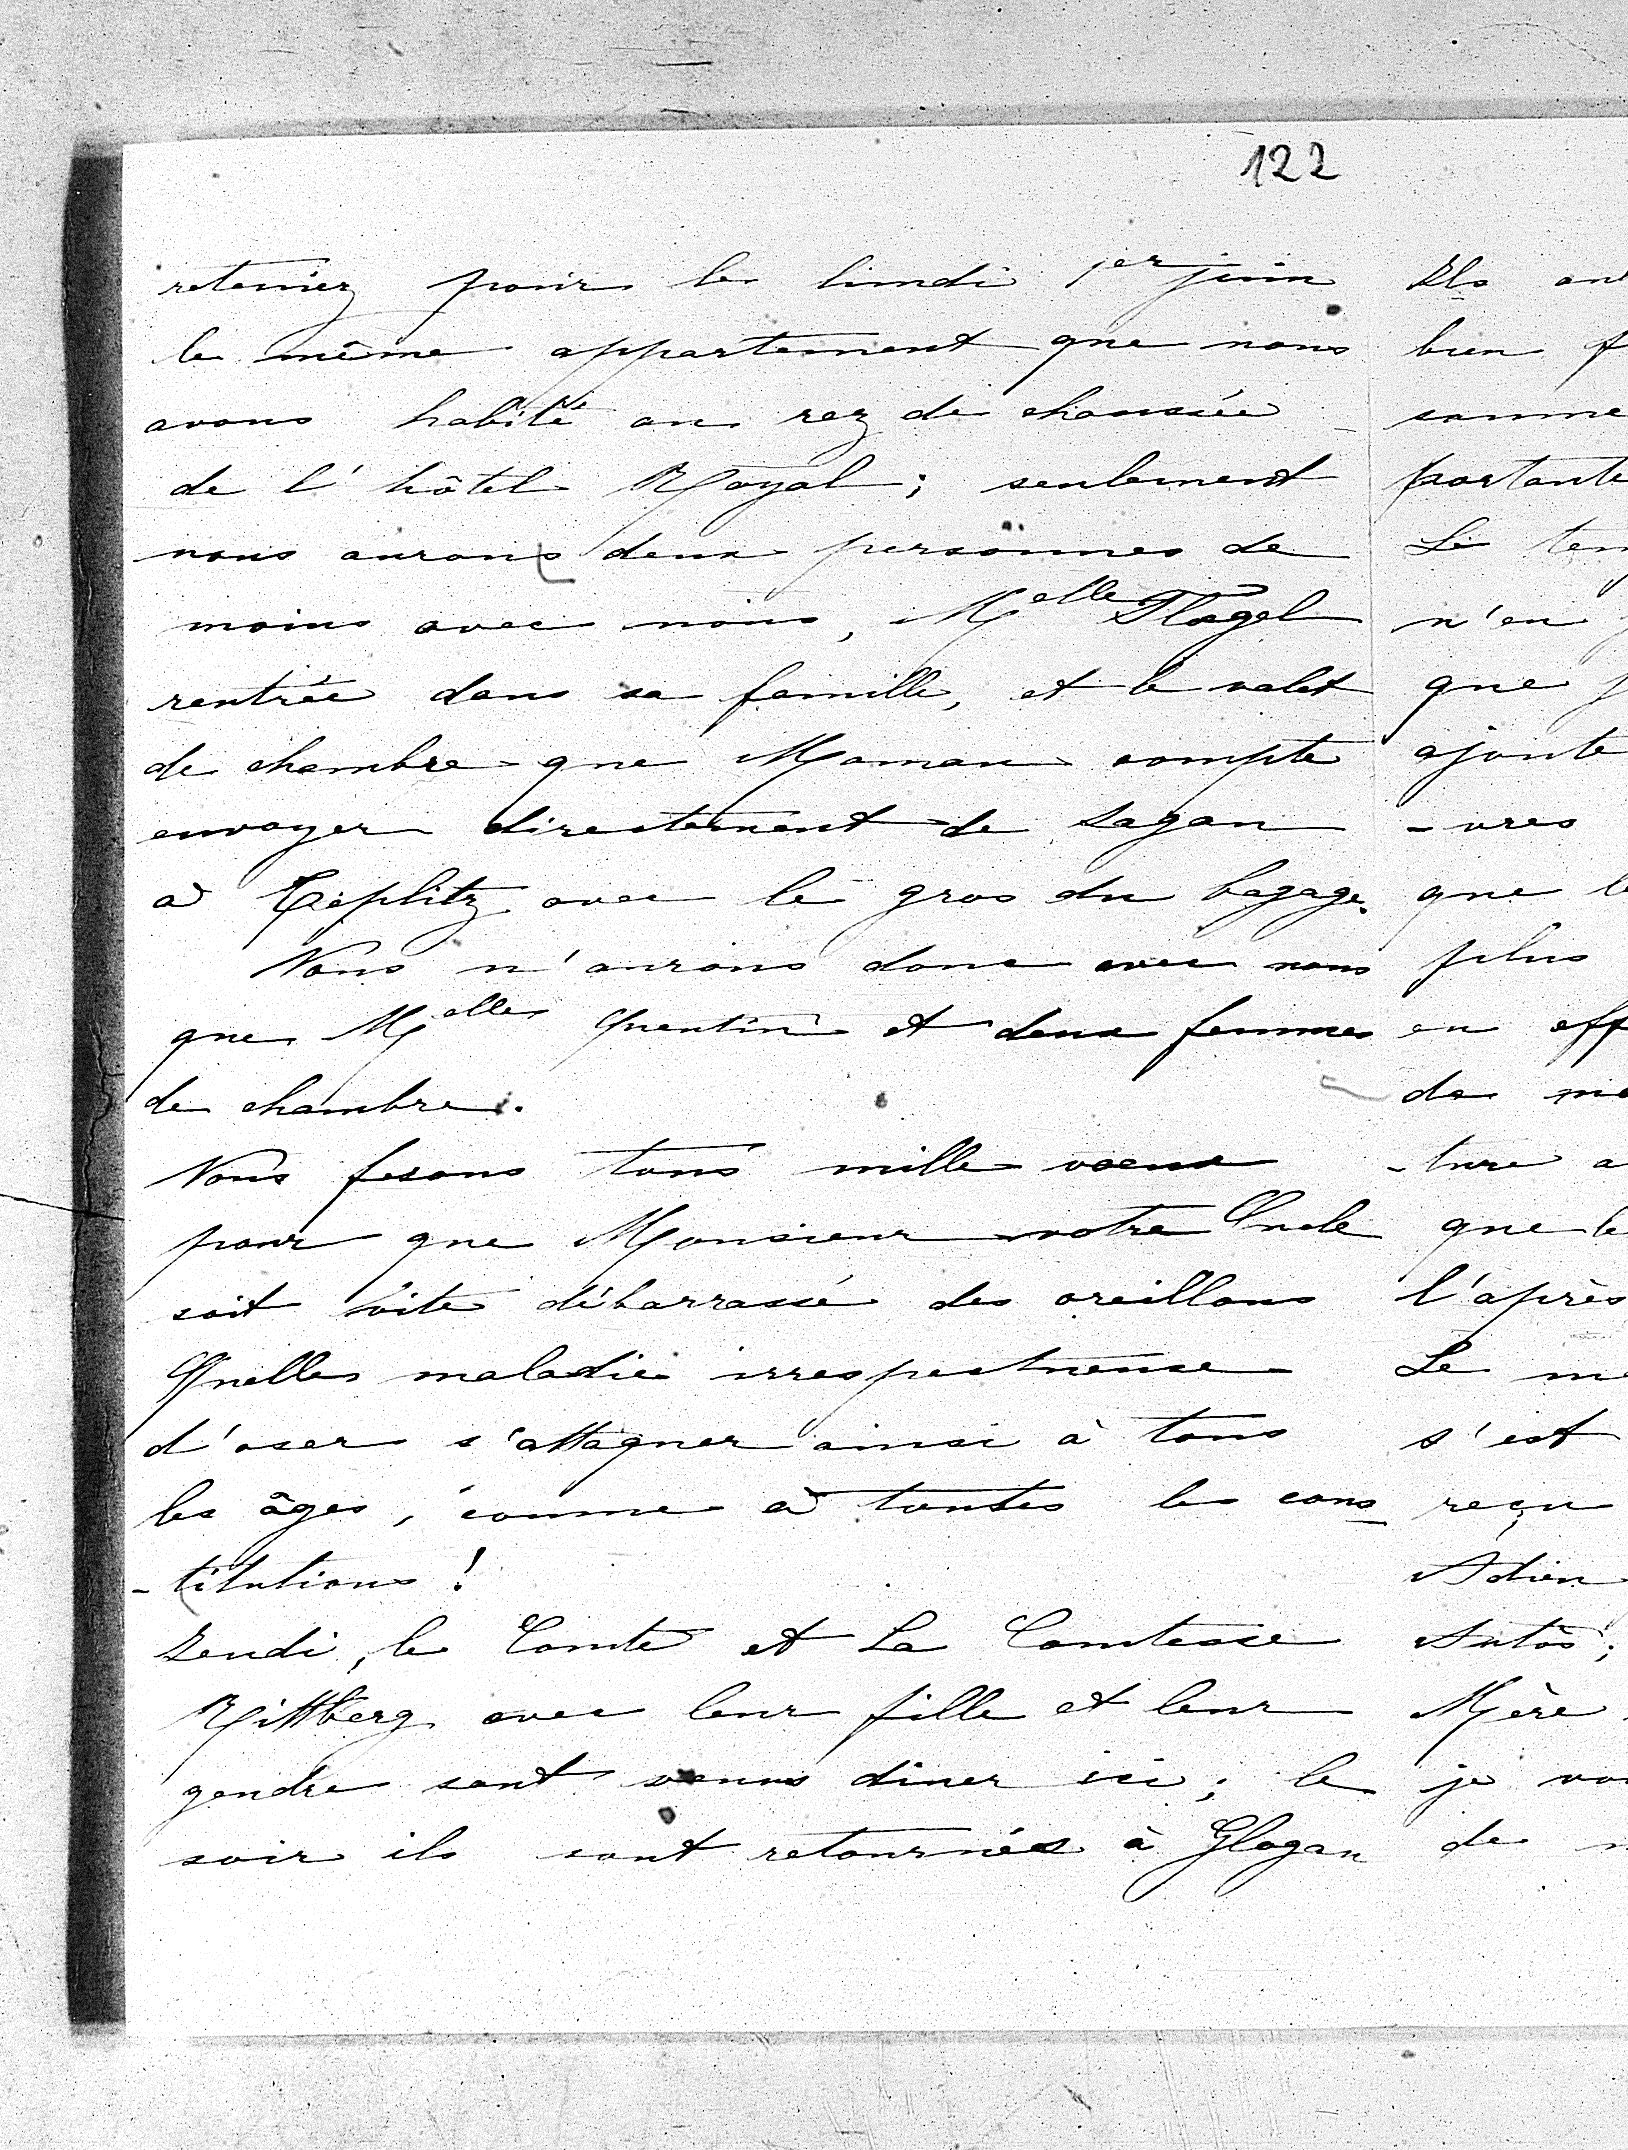 122
reteniez pour le lundi 1er juin
le même appartement que nous
avons habité au rez de chaussée
de l'hôtel Royal; seulement
nous aurons deux personnes de
moins avec nous, Melle Flögel
rentrée dans sa famille, et le valet
de chambre que Maman compte
envoyer directement de Sagan
à Töplitz avec le gros du bagage.
Nous n'aurons donc avec nous
que Melles Quentin et deux femmes
de chambre.
Nous fesons tous mille vœux
pour que Monsieur votre Oncle
soit vite débarrassé des oreillons
Quelle maladie irrespectueuse
d'oser s'attaquer ainsi à tous
les âges, comme à toutes les cons
-titutions!
Jeudi, le Comte et la Comtesse
Rittberg avec leur fille et leur
gendre sont venus diner ici; le
soir ils sont retournés à Glogau
Ils
bien
somme
portante
Le
n'en
que
ajoute
-vres
que
plus
en eff
de
-ture a
que le
l'après
Le
s'est
reçu
Adieu
Mère
je
de